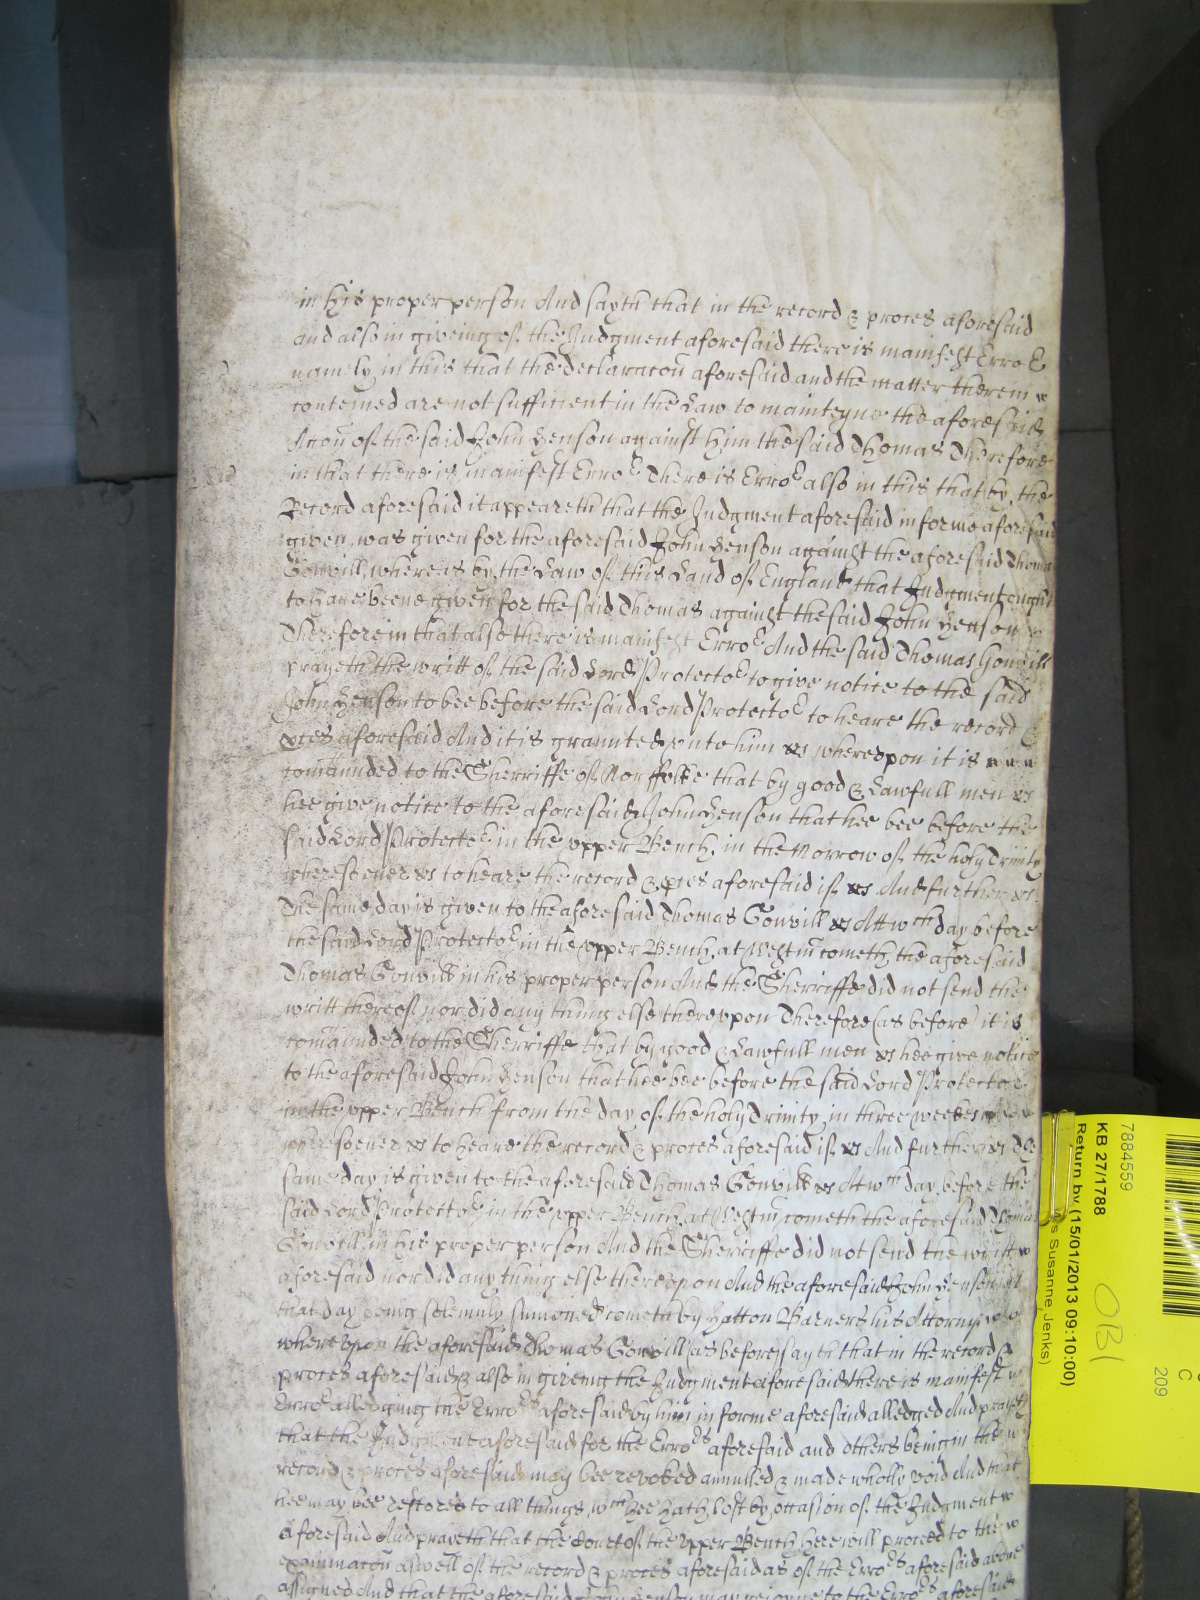 in his proper person And sayth that in the record & proces aforesaid
and also in giveing of the Judgment aforesaid there is manifest Erro^r
namely in this that the declaracon aforesaid and the matter therein
conteined are not sufficient in the Law to mainteyne the aforesaid
Accon of the said John Henson against him the said Thomas Therefore
in that there is manifest Erro^r There is Erro^r also in this that by the
Record aforesaid it appeareth that the Judgment aforesaid in forme aforesaid
given was given for the aforesaid John Henson against the aforesaid Thomas
Gonvill, whereas by the Law of this Land of England that Judgment ought
to have beene given for the said Thomas against the said John Henson
Therefore in that also there is manifest Erro^r And the said Thomas Gonvill
prayeth the writt of the said Lord Protecto^r to give notice to the said
John Henson to bee before the said Lord Protecto^r to heare the record &
pces aforesaid And it is graunted unto him &c whereupon it is
comaunded to the Sherriffe of Norffolke that by good & Lawfull men &c
hee give notice to the aforesaid John Henson that hee bee before the
said Lord Protecto^r in the upper Bench, in the Morrow of the holy Trinity
wheresoever &c to heare the record & pces aforesaid if &c And further &c
The same day is given to the aforesaid Thomas Gonvill &c Att w^ch day before
the said Lord Protecto^r in the upper Bench, at Westm cometh, the aforesaid
Thomas Gonvill in his proper person And the Sherriffe did not send the
writt thereof nor did any thing else thereupon Therefore (as before) it is
comaunded to the Sherriffe that by good & Lawfull men &c hee give notice
to the aforesaid John Henson that hee bee before the said Lord Protector
in the upper Bench from the day of the holy Trinity, in three weekes
wheresoever &c to heare the record & proces aforesaid if &c And further &c The
same day is given to the aforesaid Thomas Gonvill &c At w^ch day, before the
said Lord Protecto^r in the upper Bench, at Westm cometh the aforesaid Thomas
Gonvill in his proper person And the Sherriffe did not send the writt
aforesaid nor did any thing else thereupon And the aforesaid John Henson
that day being solemnly sumoned cometh by Hatton Barners his Attorny
whereupon the aforesaid Thomas Gonvill (as before) sayth that in the record &
proces aforesaid & also in giveing the Judgment aforesaid there is manifest
Erro^r alledgeing the Erro^rs aforesaid by him in forme aforesaid alledged And prayeth
that the Judgment aforesaid for the Erro^rs aforesaid and others being in the
record & proces aforesaid may bee revoked annulled & made wholly void And that
hee may bee restored to all things w^ch hee hath lost by occasion of the Judgment
aforesaid And prayeth that the Court of the Upper Bench here will proceed to the
examinacon aswell of the record & proces aforesaid as of the Erro^rs aforesaid above
assigned And that the aforesaid John Henson may rejoyne to the Erro^rs aforesaid
7884559
KB 27/1788
Return by (15/01/2013 09:10:00)
Susanne Jenks)
OBI
C
209